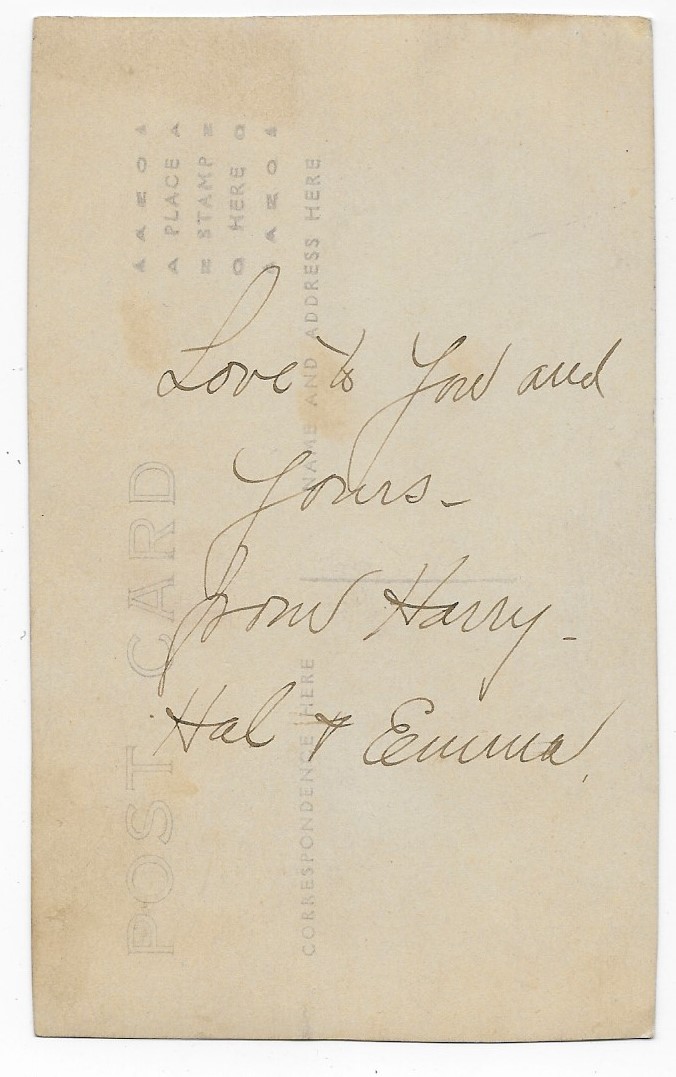 Love to You and
Yours -
from Harry -
Hal & Emma
POST CARD
CORRESPONDENCE HERE
NAME AND ADDRESS HERE
PLACE
STAMP
HERE